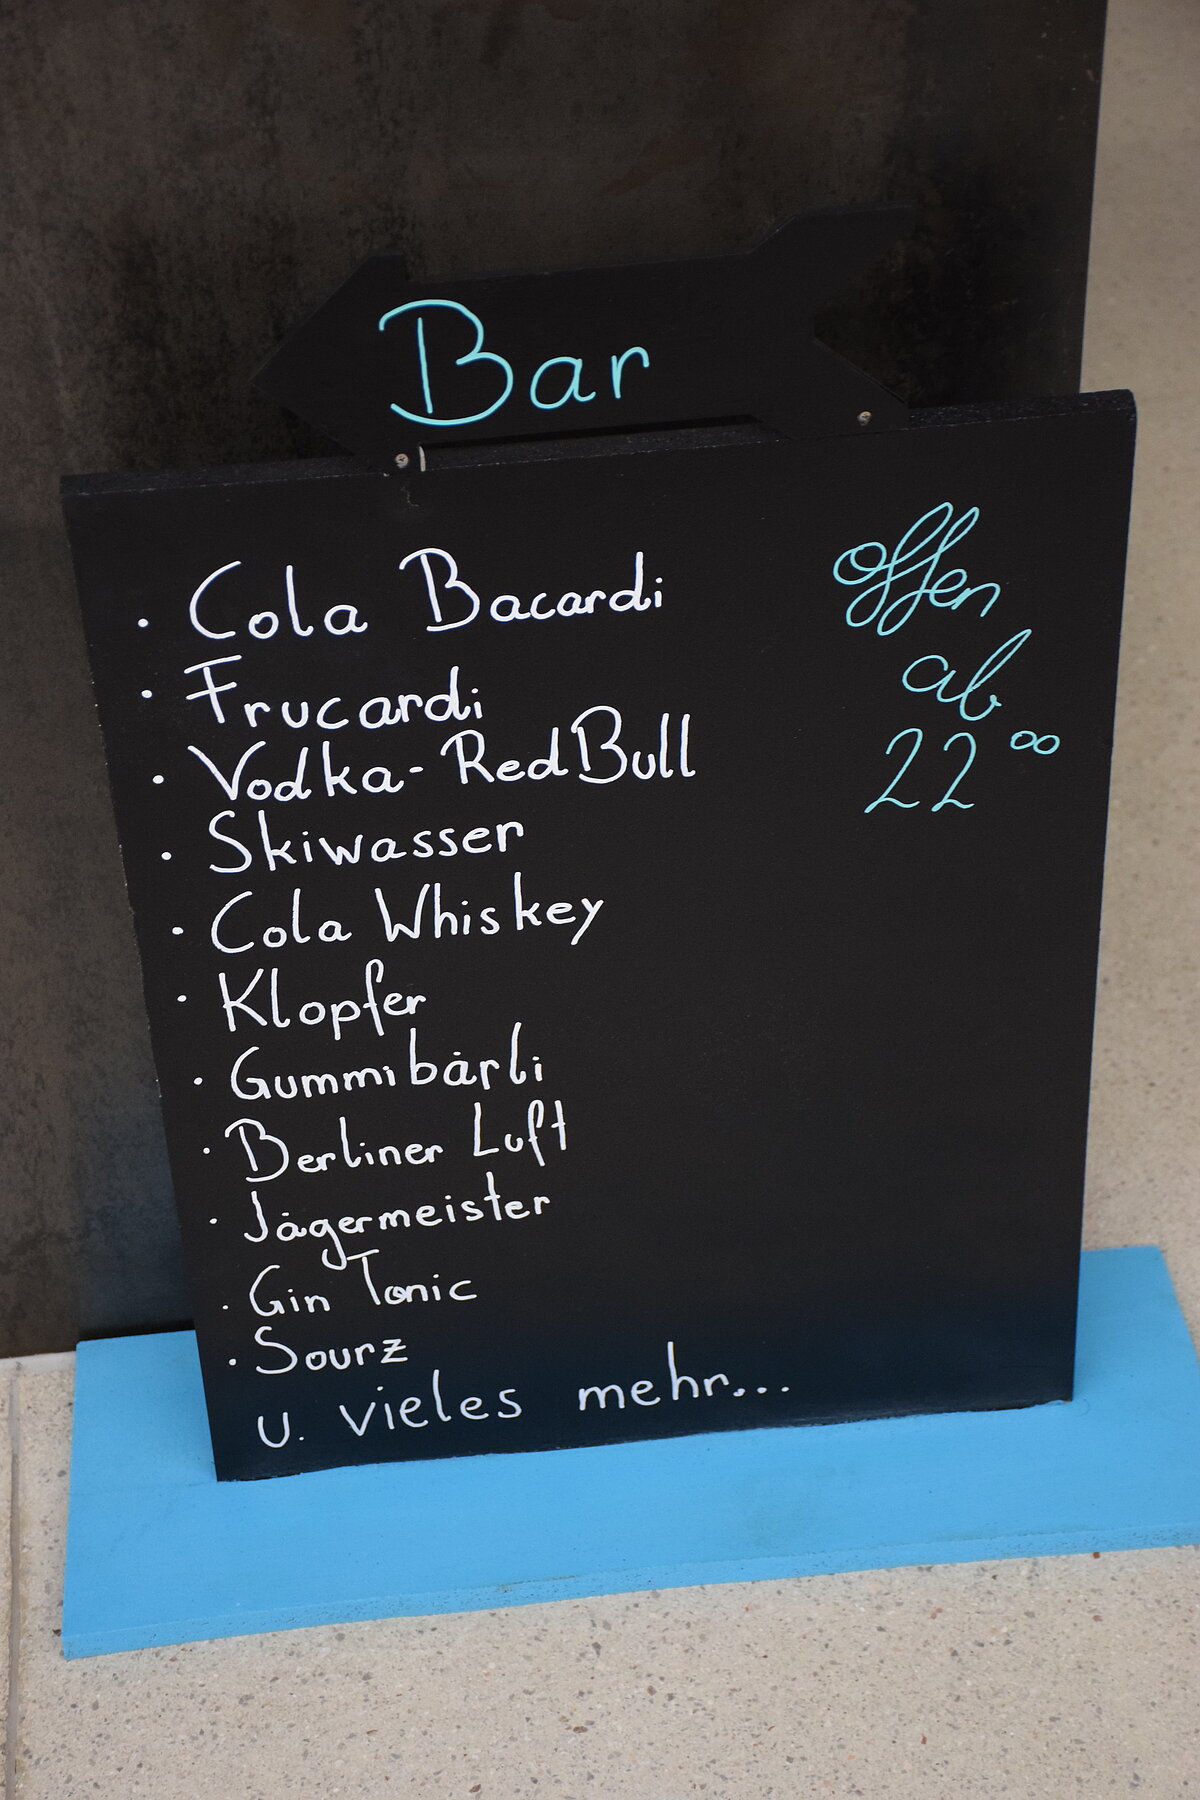 Bar
· Cola Bacardi
· Frucardi
· Vodka-RedBull
· Skiwasser
· Cola Whiskey
· Klopfer
· Gummibärli
· Berliner Luft
· Jägermeister
· Gin Tonic
· Sourz
u. vieles mehr...
offen
ab
22⁰⁰